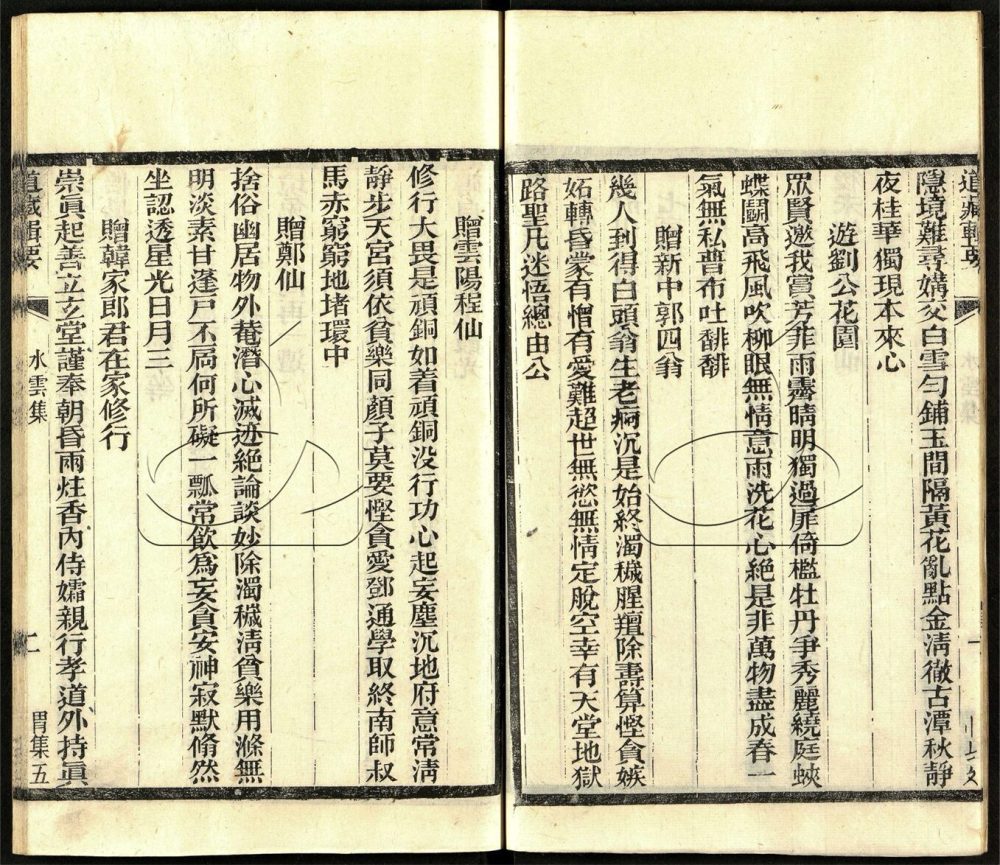 道藏輯要
隱境難尋媾交白雪勻鋪玉間隔黃花亂點金淸徹古潭秋靜
夜桂華獨現本來心
遊劉公花園
眾賢邀我賞芳菲雨霽晴明獨過扉倚檻牡丹爭秀麗繞庭蛺
蝶鬬高飛風吹柳眼無情意雨洗花心絶是非萬物盡成春一
氣無私普布吐馡馡
贈新中郭四翁
幾人到得白頭翁生老病沉是始終濁穢腥羶除壽算慳貪嫉
妬轉昏蒙有憎有愛難超世無慾無情定脫空幸有天堂地獄
路聖凡迷悟總由公
贈雲陽程仙
修行大畏是頑銅如着頑銅没行功心起妄塵沉地府意常淸
靜步天宮須依貧樂同顏子莫要慳貪愛鄧通學取終南師叔
馬赤窮窮地堵環中
贈鄭仙
捨俗幽居物外菴潛心滅迹絶論談妙除濁穢淸貧樂用滌無
明淡素甘蓬戸不扃何所礙一瓢常飲爲妄貪安神寂默翛然
坐認透星光日月三
贈韓家郎君在家修行
崇眞起善立玄堂謹奉朝昏兩炷香內侍孀親行孝道外持眞
道藏輯要
水雲集
胃集五